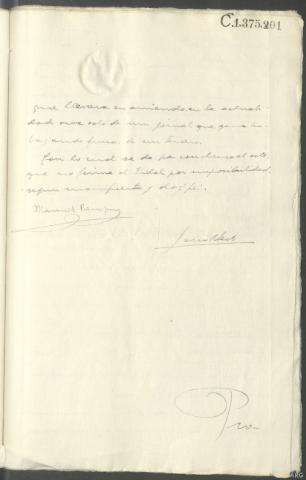 C.1.375.201
que llevara en arriendo, en la actuali
dad vive solo de un jornal que gana tra
bajando fincas de un
Con lo cual se da por concluso el acto,
que no firma el Vidal por imposibilidad,
segun manifiesta y doy fe.
Manuel
Pro-